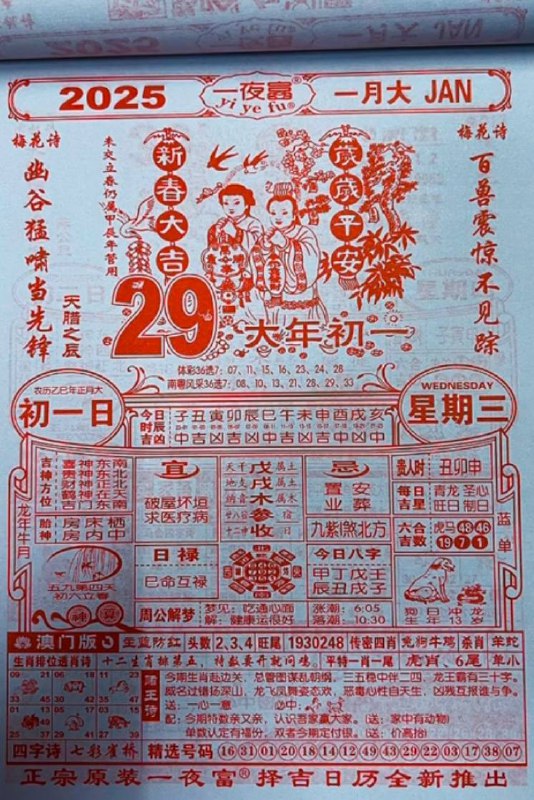 2025
一夜富®
yi ye fu
一月大 JAN
梅花诗
幽谷猛啸当先锋
未交立春仍属甲辰年管用
天腊之辰
新春大吉
岁岁平安
梅花诗
百兽震惊不见踪
29
大年初一
体彩36选7: 07、11、15、16、23、24、28
南粤风采36选7: 08、10、13、21、28、29、33
农历乙巳年正月大
初一日
WEDNESDAY
星期三
今日时辰吉凶
子丑寅卯辰巳午未申酉戌亥
中吉凶吉中凶凶中凶吉凶中
龙年牛月
吉神方位
喜神东南
贵神东北
财神正北
鹤神在天
吉门东南
胎神
房床栖
房内中
宜
破屋坏垣
求医疗病
天干戊属土
地支戌属土
纳音木属
廿八宿参
十二神收
忌
置安
业葬
九紫煞北方
贵人时
丑卯申
每日吉星
青龙 圣心
旺日 制日
六合吉数
虎马 48 46
19 7 1
蓝单
五九第四天
初六立春
神算
日禄
巳命互禄
今日八字
甲丁戊壬
辰丑戌子
狗日冲龙
生年13岁
周公解梦
梦见: 吃通心面
解: 健康运很好
涨潮: 6:05
落潮: 10:30
澳门版
主蓝防红
头数 2,3,4 旺尾
1930248
传密四肖
兔狗牛鸡
杀肖
羊蛇
生肖排位透肖诗
十二生肖排第五，特数要开就问鸡。
平特一肖一尾
虎肖、6尾
单小
诸王诗
今期生肖赴边关，总管图谋乱朝纲，三五稳中伴二四，龙王霸有三十子。
威名过错扬深山，龙飞凤舞姿态欢，恶毒心性自天生，凶残互报谁与争。
送: 一心一意
必中:
配: 今期特数亲又亲，认识吾家赢大家。(送: 家中有动物)
单数认定有福份，双者今期定付银。(送: 价高抬)
四字诗
七彩雀桥
精选号码
16 31 01 20 18 14 12 49 43 29 22 03 17 38 07
正宗原装一夜富® 择吉日历全新推出